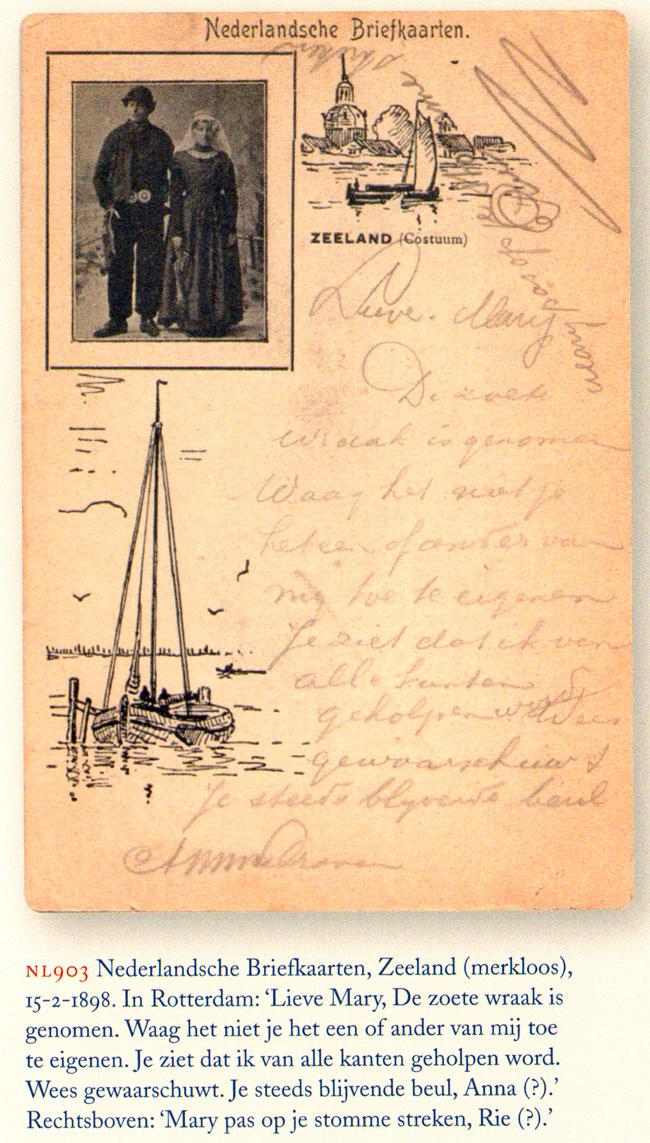 Nederlandsche Briefkaarten.
Mary pas op je stomme streken
ZEELAND (Costuum)
Lieve. Mary
De zoete
wraak is genomen
Waag het niet je
het een of ander van
mij toe te eigenen
Je ziet dat ik van
alle kanten
geholpen word Wees
gewaarschuwt
Je steeds blyvende beul
NL903 Nederlandsche Briefkaarten, Zeeland (merkloos),
15-2-1898. In Rotterdam: ‘Lieve Mary, De zoete wraak is
genomen. Waag het niet je het een of ander van mij toe
te eigenen. Je ziet dat ik van alle kanten geholpen word.
Wees gewaarschuwt. Je steeds blijvende beul, Anna (?).’
Rechtsboven: ‘Mary pas op je stomme streken, Rie (?).’